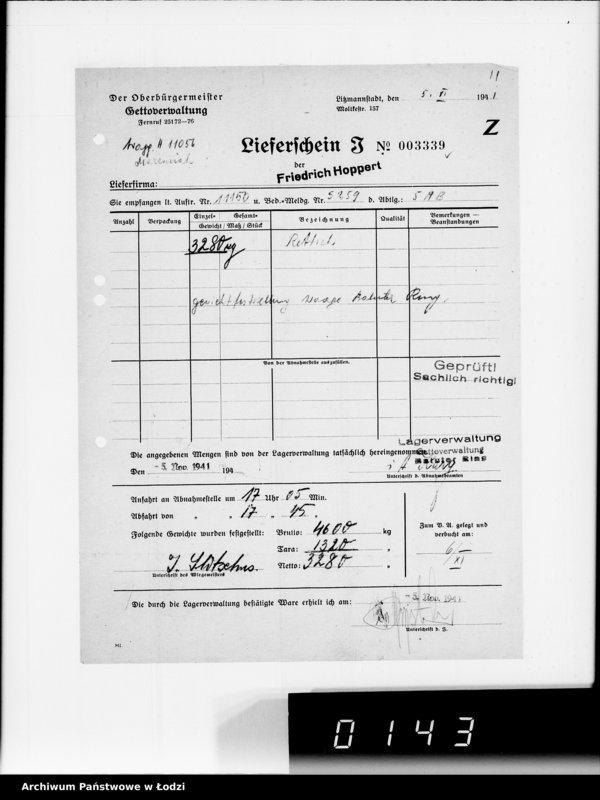 11
Der Oberbürgermeister
Gettoverwaltung
Fernruf 25172—76
Litzmannstadt, den 5. XI 1941
Moltkestr. 157
Z
Wagg # 11056
Lieferschein J № 003339
der
Friedrich Hoppert
Lieferfirma:
Sie empfangen lt. Auftr. Nr. 11150 u. Bed.-Meldg. Nr. 5259 d. Abtlg.:
Anzahl Verpackung Einzel- Gesamt- Bezeichnung Qualität Bemerkungen — Beanstandungen
Gewicht / Maß / Stück
3280 kg Rettich
Waage Baluter Ring.
Von der Abnahmestelle auszufüllen.
Geprüft!
Sachlich richtig!
Die angegebenen Mengen sind von der Lagerverwaltung tatsächlich hereingenommen.
Lagerverwaltung
Gettoverwaltung
Baluter Ring
Den - 5. Nov. 1941 194
Unterschrift d. Abnahmebeamten
Anfahrt an Abnahmestelle um 17 Uhr 05 Min.
Abfahrt von „ „ 17 „ 45 „
Folgende Gewichte wurden festgestellt: Brutto: 4600 kg
Tara: 1320 „
Netto: 3280 „
Unterschrift des Wiegemeisters
Zum B. A. gelegt und
verbucht am:
6/XI
Die durch die Lagerverwaltung bestätigte Ware erhielt ich am: - 5. Nov. 1941
Unterschrift d. F.
0143
Archiwum Państwowe w Łodzi